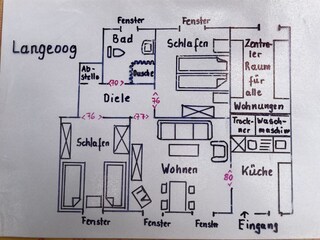 Langeoog
Fenster
Fenster
Bad
Schlafen
Zentra-
ler
Raum
für
alle
Wohnungen
Ab-
stelle
70
Dusche
Diele
76
76
77
Trock-
ner
Wasch-
maschine
Schlafen
Wohnen
80
Küche
Fenster
Fenster
Fenster
Eingang